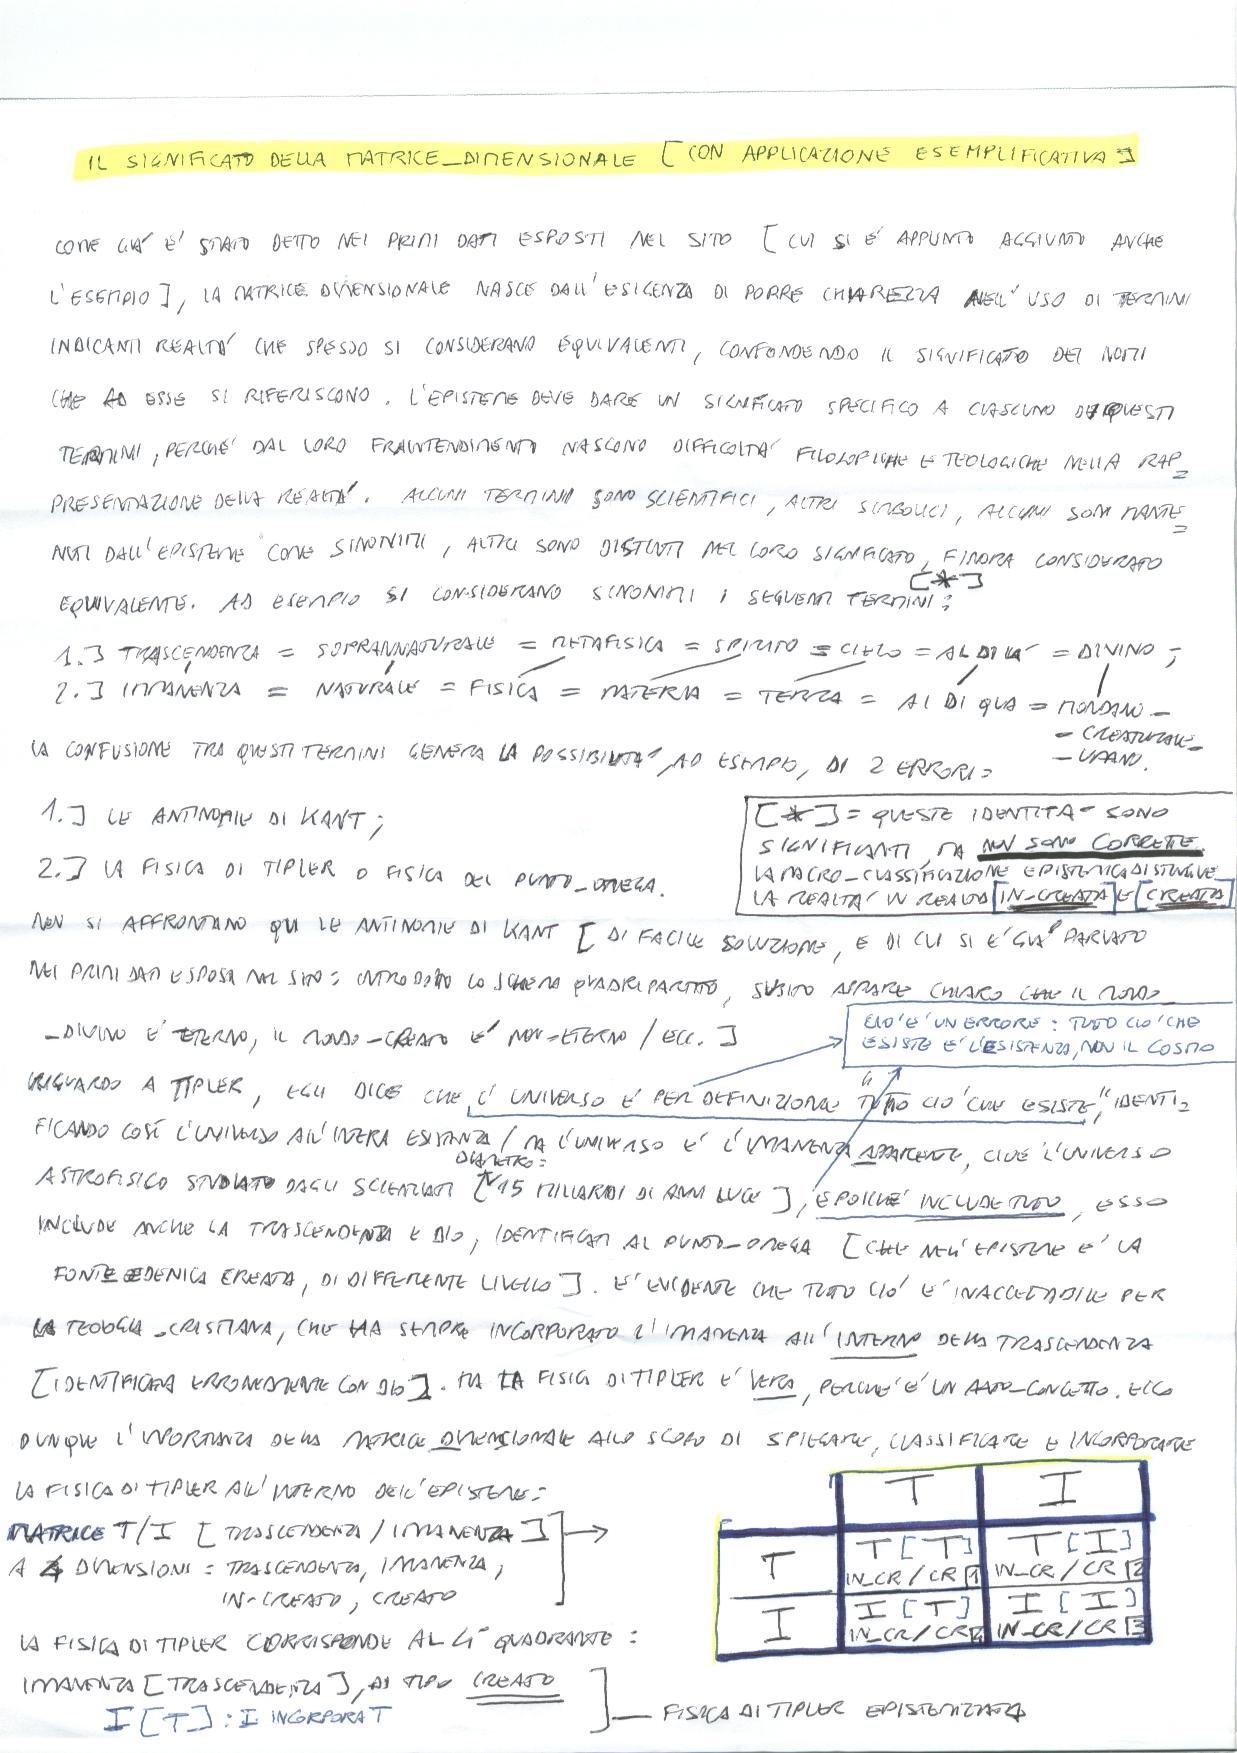 IL SIGNIFICATO DELLA MATRICE_DIMENSIONALE [CON APPLICAZIONE ESEMPLIFICATIVA]
COME GIA' E' STATO DETTO NEI PRIMI DATI ESPOSTI NEL SITO [CUI SI E' APPUNTO AGGIUNTO ANCHE
L'ESEMPIO], LA MATRICE DIMENSIONALE NASCE DALL'ESIGENZA DI PORRE CHIAREZZA NELL'USO DI TERMINI
INDICANTI REALTA' CHE SPESSO SI CONSIDERANO EQUIVALENTI, CONFONDENDO IL SIGNIFICATO DEI NOMI
CHE AD ESSE SI RIFERISCONO. L'EPISTEME DEVE DARE UN SIGNIFICATO SPECIFICO A CIASCUNO DI QUESTI
TERMINI, PERCHE' DAL LORO FRAINTENDIMENTO NASCONO DIFFICOLTA' FILOSOFICHE E TEOLOGICHE NELLA RAP=
PRESENTAZIONE DELLA REALTA'. ALCUNI TERMINI SONO SCIENTIFICI, ALTRI SIMBOLICI, ALCUNI SONO MANTE=
NUTI DALL'EPISTEME COME SINONIMI, ALTRI SONO DISTINTI NEL LORO SIGNIFICATO, FINORA CONSIDERATO
EQUIVALENTE. AD ESEMPIO SI CONSIDERANO SINONIMI I SEGUENTI TERMINI [*]:
1.] TRASCENDENZA = SOPRANNATURALE = METAFISICA = SPIRITO = CIELO = AL DI LA' = DIVINO;
2.] IMMANENZA = NATURALE = FISICA = MATERIA = TERRA = AL DI QUA = MONDANO -
- CREATURALE -
- UMANO.
LA CONFUSIONE TRA QUESTI TERMINI GENERA LA POSSIBILITA', AD ESEMPIO, DI 2 ERRORI:
1.] LE ANTINOMIE DI KANT;
2.] LA FISICA DI TIPLER O FISICA DEL PUNTO_OMEGA.
[*] = QUESTE IDENTITA' SONO
SIGNIFICANTI, MA NON SONO CORRETTE.
LA MACRO_CLASSIFICAZIONE EPISTEMICA DISTINGUE
LA REALTA' IN REALTA' [IN_CREATA] E [CREATA]
NON SI AFFRONTANO QUI LE ANTINOMIE DI KANT [DI FACILE SOLUZIONE, E DI CUI SI E' GIA' PARLATO
NEI PRIMI DATI ESPOSTI NEL SITO: INTRODOTTO LO SCHEMA QUADRIPARTITO, SUBITO APPARE CHIARO CHE IL MONDO
_DIVINO E' ETERNO, IL MONDO_CREATO E' NON-ETERNO / ECC.]
CIO' E' UN ERRORE: TUTTO CIO' CHE
ESISTE E' L'ESISTENZA, NON IL COSMO
RIGUARDO A TIPLER, EGLI DICE CHE L'UNIVERSO E' PER DEFINIZIONE "TUTTO CIO' CHE ESISTE", IDENTI=
FICANDO COSÌ L'UNIVERSO ALL'INTERA ESISTENZA / MA L'UNIVERSO E' L'IMMANENZA APPARENTE, CIOE' L'UNIVERSO
ASTROFISICO STUDIATO DAGLI SCIENZIATI [DIAMETRO: ~15 MILIARDI DI ANNI LUCE], E POICHE' INCLUDE TUTTO, ESSO
INCLUDE ANCHE LA TRASCENDENZA E DIO, IDENTIFICATI AL PUNTO_OMEGA [CHE NELL'EPISTEME E' LA
FONTE EDENICA CREATA, DI DIFFERENTE LIVELLO]. E' EVIDENTE CHE TUTTO CIO' E' INACCETTABILE PER
LA TEOLOGIA_CRISTIANA, CHE HA SEMPRE INCORPORATO L'IMMANENZA ALL'INTERNO DELLA TRASCENDENZA
[IDENTIFICATA ERRONEAMENTE CON DIO]. MA LA FISICA DI TIPLER E' VERA, PERCHE' E' UN DATO_CONCETTO. ECCO
DUNQUE L'IMPORTANZA DELLA MATRICE DIMENSIONALE ALLO SCOPO DI SPIEGARE, CLASSIFICARE E INCORPORARE
LA FISICA DI TIPLER ALL'INTERNO DELL'EPISTEME:
MATRICE T/I [TRASCENDENZA / IMMANENZA]
A 4 DIMENSIONI: TRASCENDENZA, IMMANENZA,
IN-CREATO, CREATO
T I
T T [T] T [I]
IN_CR / CR 1 IN_CR / CR 2
I I [T] I [I]
IN_CR / CR 4 IN_CR / CR 3
LA FISICA DI TIPLER CORRISPONDE AL 4° QUADRANTE:
IMMANENZA [TRASCENDENZA], DI TIPO CREATO
I [T]: I INCORPORA T
FISICA DI TIPLER EPISTEMIZZATA